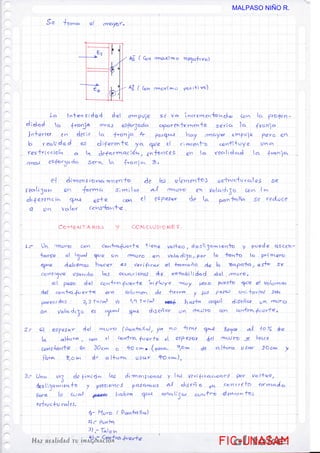 MALPASO NIÑO R.
Se toma el mayor.
E3
E2
A5 ( Con maximo negativo)
A5 ( Con maximo positivo)
La intensidad del empuje se va incrementando con la profun-
didad la franja mas esforzada aparentemente seria la franja
inferior es decir la franja A porque hay mayor empuje pero en
en realidad es diferente ya que el cimiento constituye una
restriccion a la deformación, entonces en la realidad la franja
mas esforzada Sera la franja 3.
El dimensionamiento de los elementos estructurales se
realizan en forma similar al muro en voladizo con la
diferencia que este con el espesor de la pantalla se reduce
a un valor constante.
COMENTARIOS Y CONCLUSIONES.
1.- Un muro con contrafuerte tiene volteo, deslizamiento y puede asentar
tarse al igual que un muro en voladizo, por lo tanto lo primero
que debemos hacer es verificar el tamaño de la zapata, esto se
consigue usando las ecuaciones de estabilidad del muro,
el peso del contrafuerte influye muy poco puesto que el volumen
del contrafuerte con volumen de tierra y sus pesos unitarios son
parecidos. 2,3 Tn/m³ hasta aqui diseñar un muro
en voladizo es igual que diseñar un muro con contrafuerte.
2.- El espesor del muro (Pantalla), ya no tiene que llegar al 10% de
la altura, con el contrafuerte el espesor del muro se hace
constante en 30cm o 40cm (para 9,0m de altura usar 30cm y
para de altura usar 40cm).
3.- Una vez definidas las dimensiones y las verificaciones por volteo,
deslizamiento y presiones pasamos al diseño en concreto armado
para lo cual habra que analizar cuatro elementos
estructurales.
1.- Muro (Pantalla)
2.- Punta
3.- Talon
4.- Contrafuerte
Haz realidad tu imaginación
FIC-UNASAM